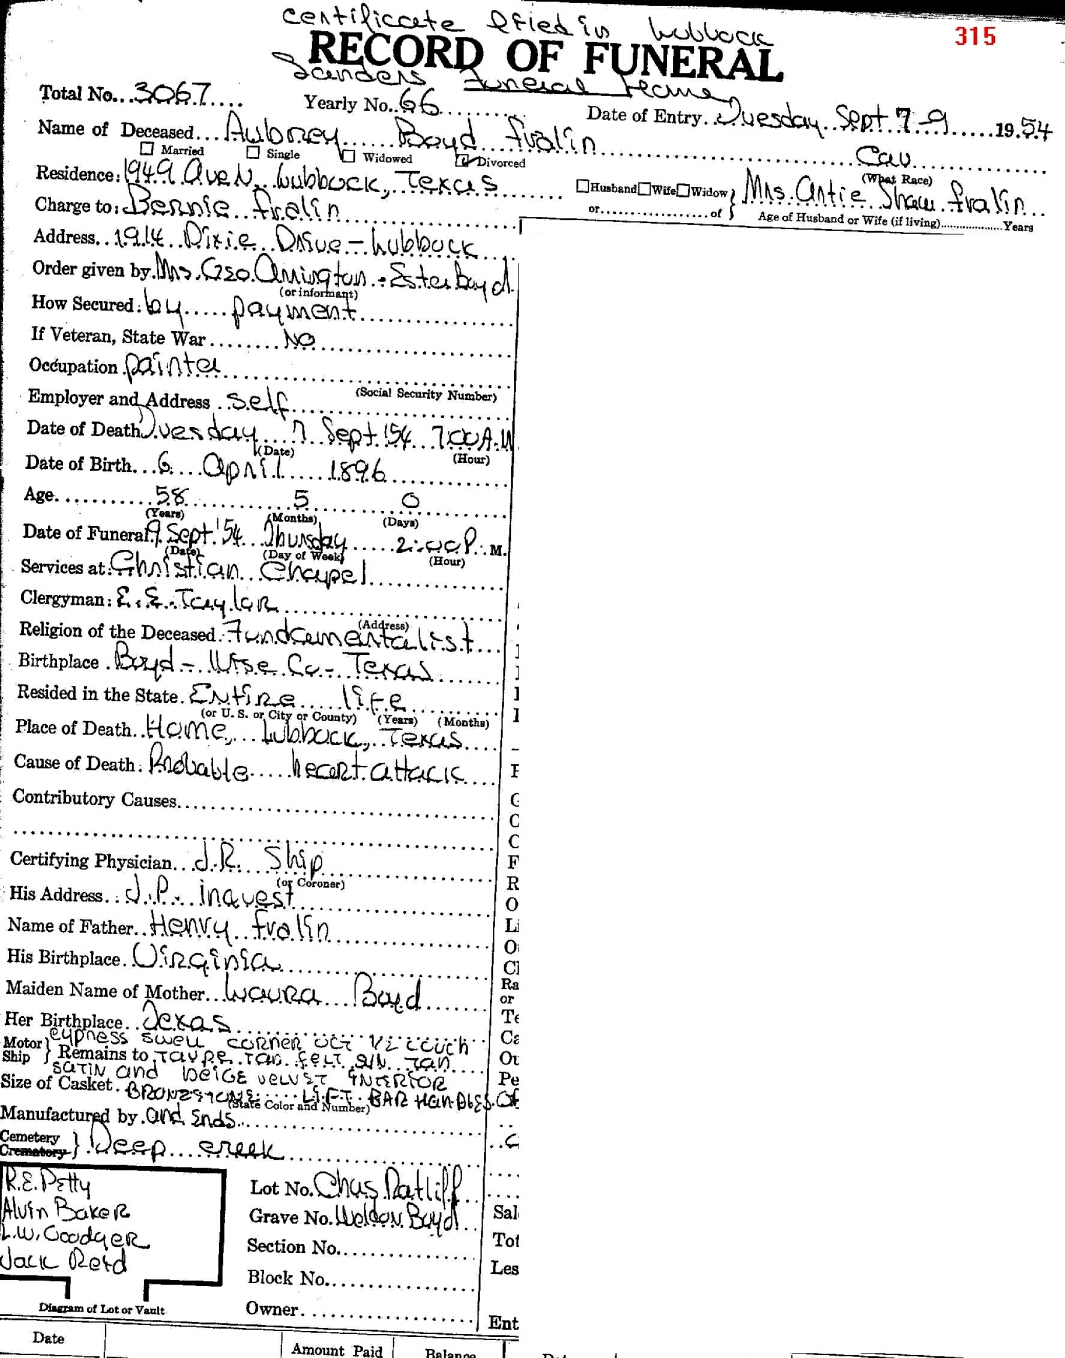 certificate filed in Lubbock
315
RECORD OF FUNERAL
Sanders Funeral Home
Total No...3067.... Yearly No..66........ Date of Entry..Tuesday..Sept 7-9.....1954
Name of Deceased...Aubrey Boyd Fralin.... Cau....
☐ Married ☐ Single ☐ Widowed ☑ Divorced (What Race)
Residence: 1949 Ave N, Lubbock, Texas ☐Husband☐Wife☐Widow} Mrs. Antie Shaw Fralin
or....................of } Age of Husband or Wife (if living)..................Years
Charge to: Bernie Fralin
Address..1914 Dixie Drive - Lubbock
Order given by. Mrs. Geo. Arrington - Ester Boyd
(or informant)
How Secured: by..... payment
If Veteran, State War........No
Occupation.painter
(Social Security Number)
Employer and Address..self
Date of Death Tuesday 7 Sept '54 7:00 A.M
(Date) (Hour)
Date of Birth...6...April....1896
Age...........58 5 0
(Years) (Months) (Days)
Date of Funeral.9 Sept '54 Thursday 2:00 P. M.
(Date) (Day of Week) (Hour)
Services at: Christian Chapel
Clergyman: E.E. Taylor
(Address)
Religion of the Deceased. Fundamentalist
Birthplace. Boyd - Wise Co - Texas
Resided in the State. Entire life
(or U. S. or City or County) (Years) (Months)
Place of Death..Home, Lubbock, Texas
Cause of Death: Probable heart attack
Contributory Causes...
Certifying Physician...J.R. Ship
(or Coroner)
His Address..J.P. inquest
Name of Father..Henry Fralin
His Birthplace..Virginia
Maiden Name of Mother...Laura Boyd
Her Birthplace..Texas
Motor Ship } cypress swell corner oct
Remains to taupe tan felt tan
satin and beige velvet interior
Size of Casket. BRONZETONE LIFT BAR HANDLES
(State Color and Number)
Manufactured by and Ends
Cemetery Crematory } Deep creek
R.E. Petty
Alvin Baker
L.W. Goodger
Jack Reid
Lot No. Chas Ratliff
Grave No. Weldon Boyd
Section No...
Block No...
Owner...
Diagram of Lot or Vault
Sal
Tot
Les
Ent
Date Amount Paid Balance